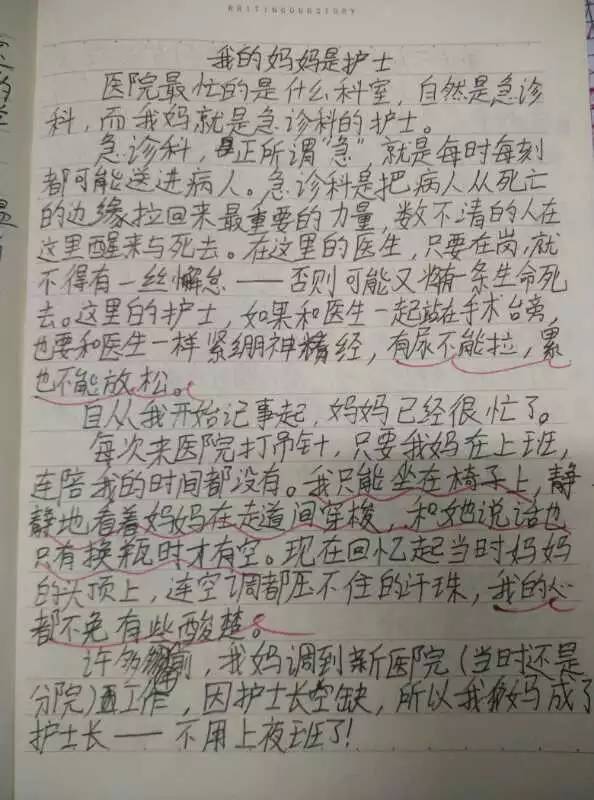 WRITINGOURSTORY
我的妈妈是护士
医院最忙的是什么科室，自然是急诊
科，而我妈就是急诊科的护士。
急诊科，正所谓“急”，就是每时每刻
都可能送进病人。急诊科是把病人从死亡
的边缘拉回来最重要的力量，数不清的人在
这里醒来与死去。在这里的医生，只要在岗，就
不得有一丝懈怠——否则可能又将有一条生命死
去。这里的护士，如果和医生一起站在手术台旁，
也要和医生一样紧绷神经，有尿不能拉，累
也不能放松。
自从我开始记事起，妈妈已经很忙了。
每次来医院打吊针，只要我妈在上班，
连陪我的时间都没有。我只能坐在椅子上，静
静地看着妈妈在走道间穿梭，和她说话也
只有换瓶时才有空。现在回忆起当时妈妈
的头顶上，连空调都压不住的汗珠，我的心
都不免有些酸楚。
许多年前，我妈调到新医院（当时还是
分院）工作，因护士长空缺，所以我妈成了
护士长——不用上夜班了！